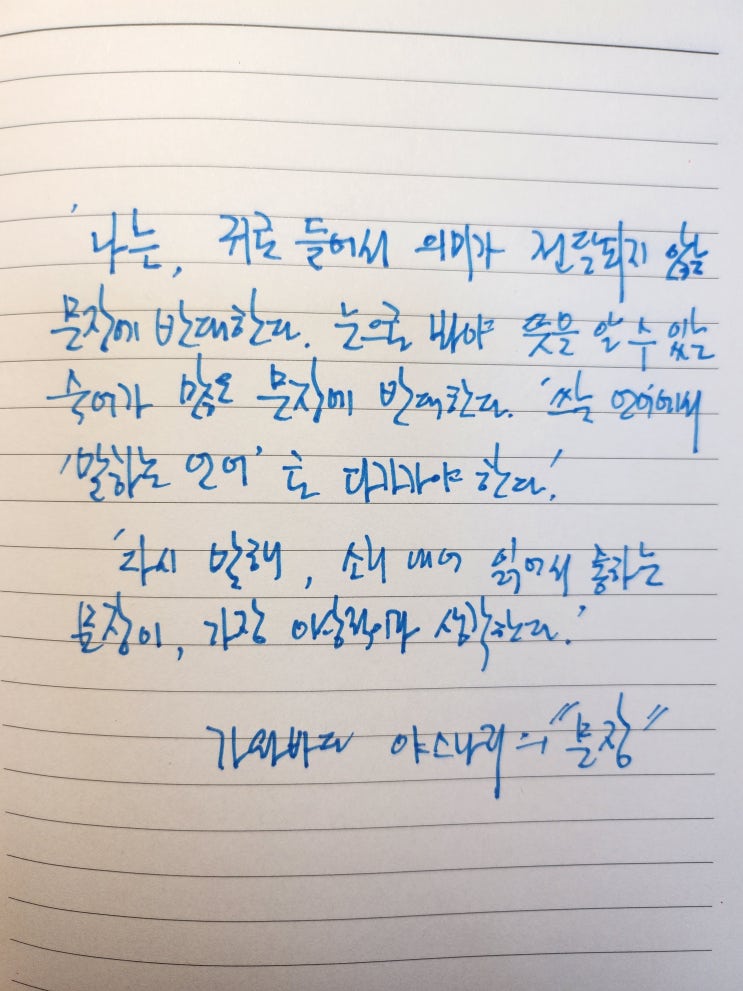 '나는, 귀로 들어서 의미가 전달되지 않는
문장에 반대한다. 눈으로 봐야 뜻을 알 수 있는
숙어가 많은 문장에 반대한다. '쓰는 언어'에서
'말하는 언어'로 다가가야 한다.'
'다시 말해, 소리 내어 읽어서 통하는
문장이, 가장 이상적이라 생각한다.'
가와바다 야스나리의 "문장"